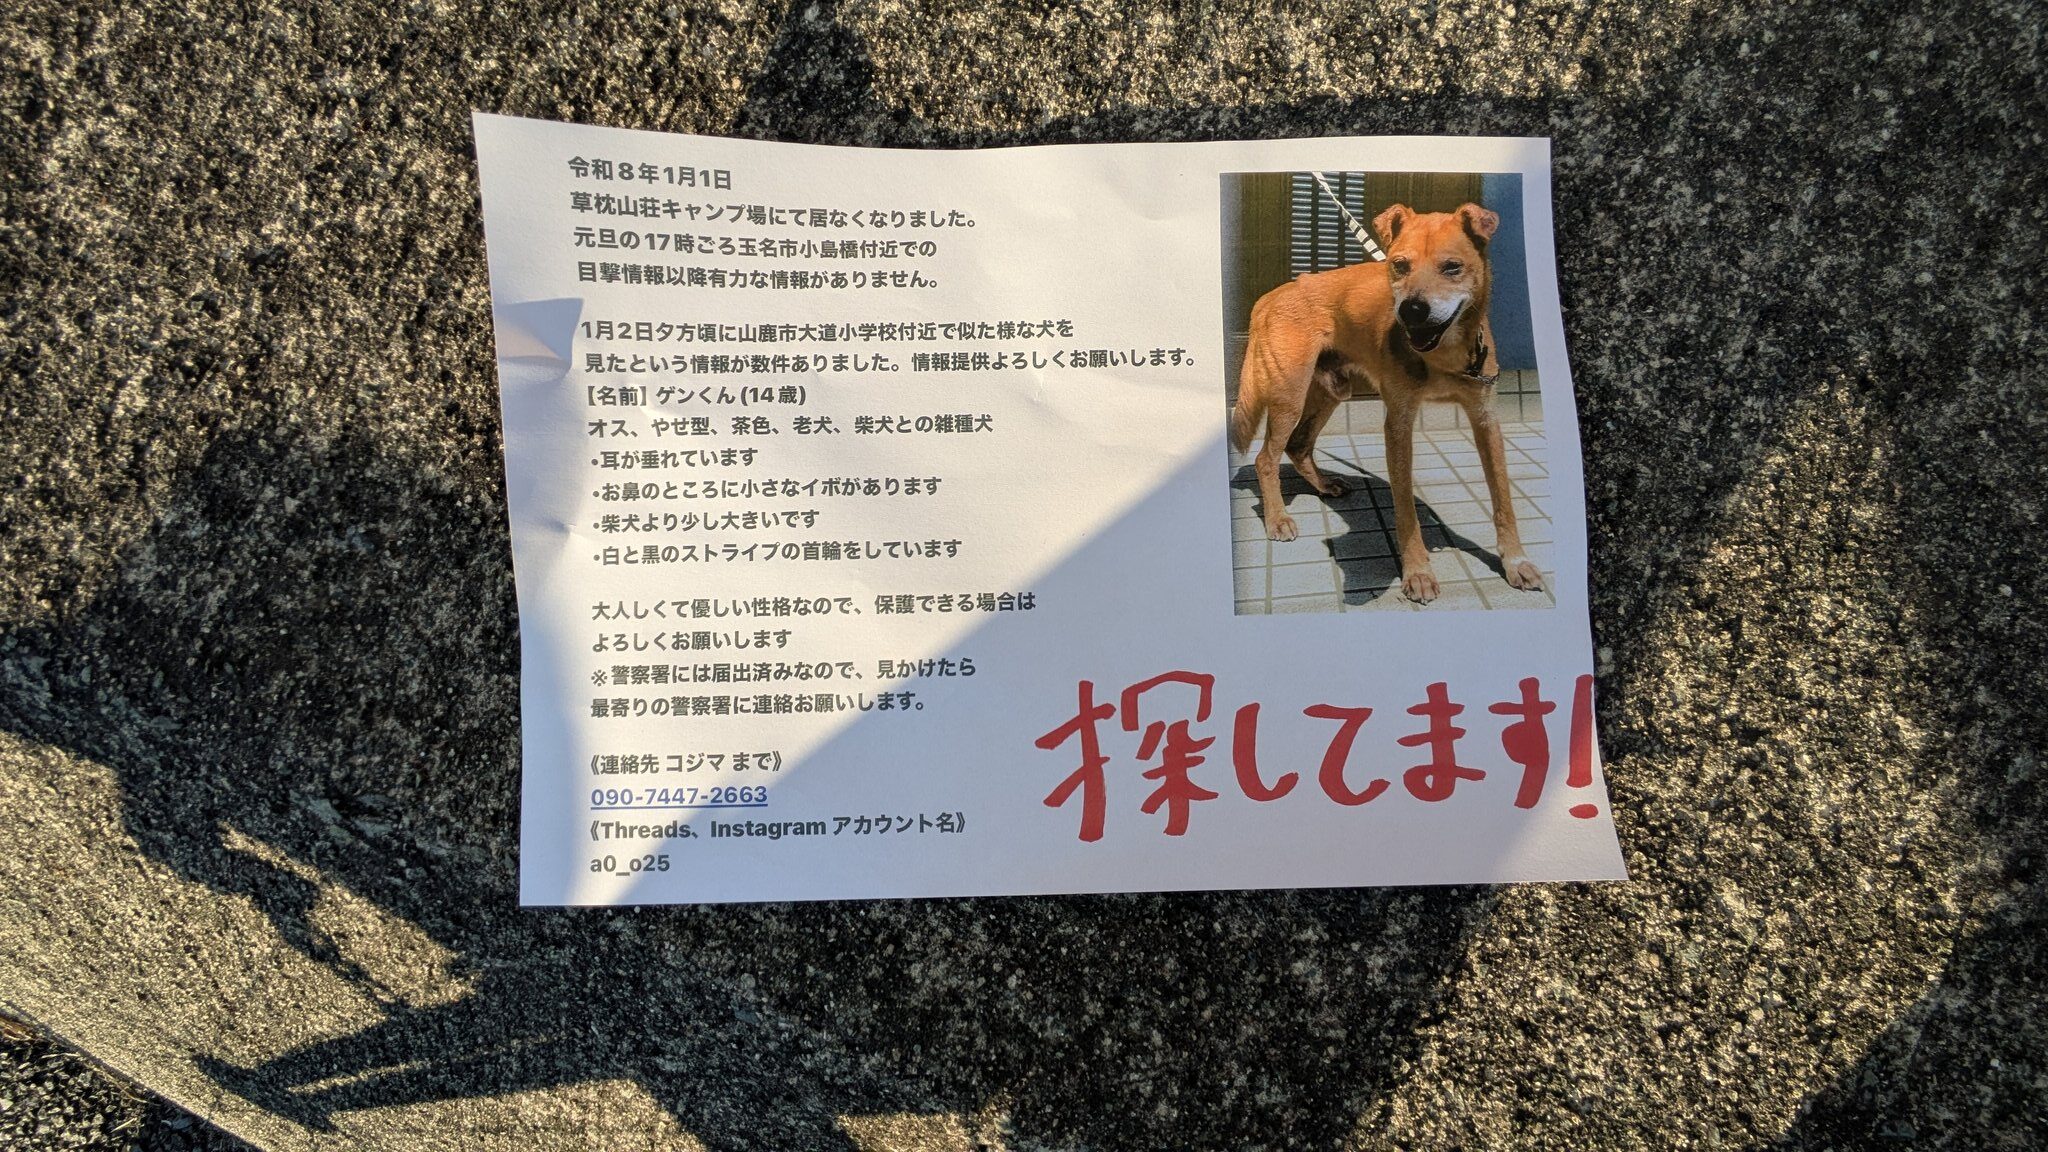 令和8年1月1日
草枕山荘キャンプ場にて居なくなりました。
元旦の17時ごろ玉名市小島橋付近での
目撃情報以降有力な情報がありません。
1月2日夕方頃に山鹿市大道小学校付近で似た様な犬を
見たという情報が数件ありました。情報提供よろしくお願いします。
【名前】ゲンくん(14歳)
オス、やせ型、茶色、老犬、柴犬との雑種犬
•耳が垂れています
•お鼻のところに小さなイボがあります
•柴犬より少し大きいです
•白と黒のストライプの首輪をしています
大人しくて優しい性格なので、保護できる場合は
よろしくお願いします
※警察署には届出済みなので、見かけたら
最寄りの警察署に連絡お願いします。
《連絡先 コジマ まで》
090-7447-2663
《Threads、Instagram アカウント名》
a0_o25
探してます!